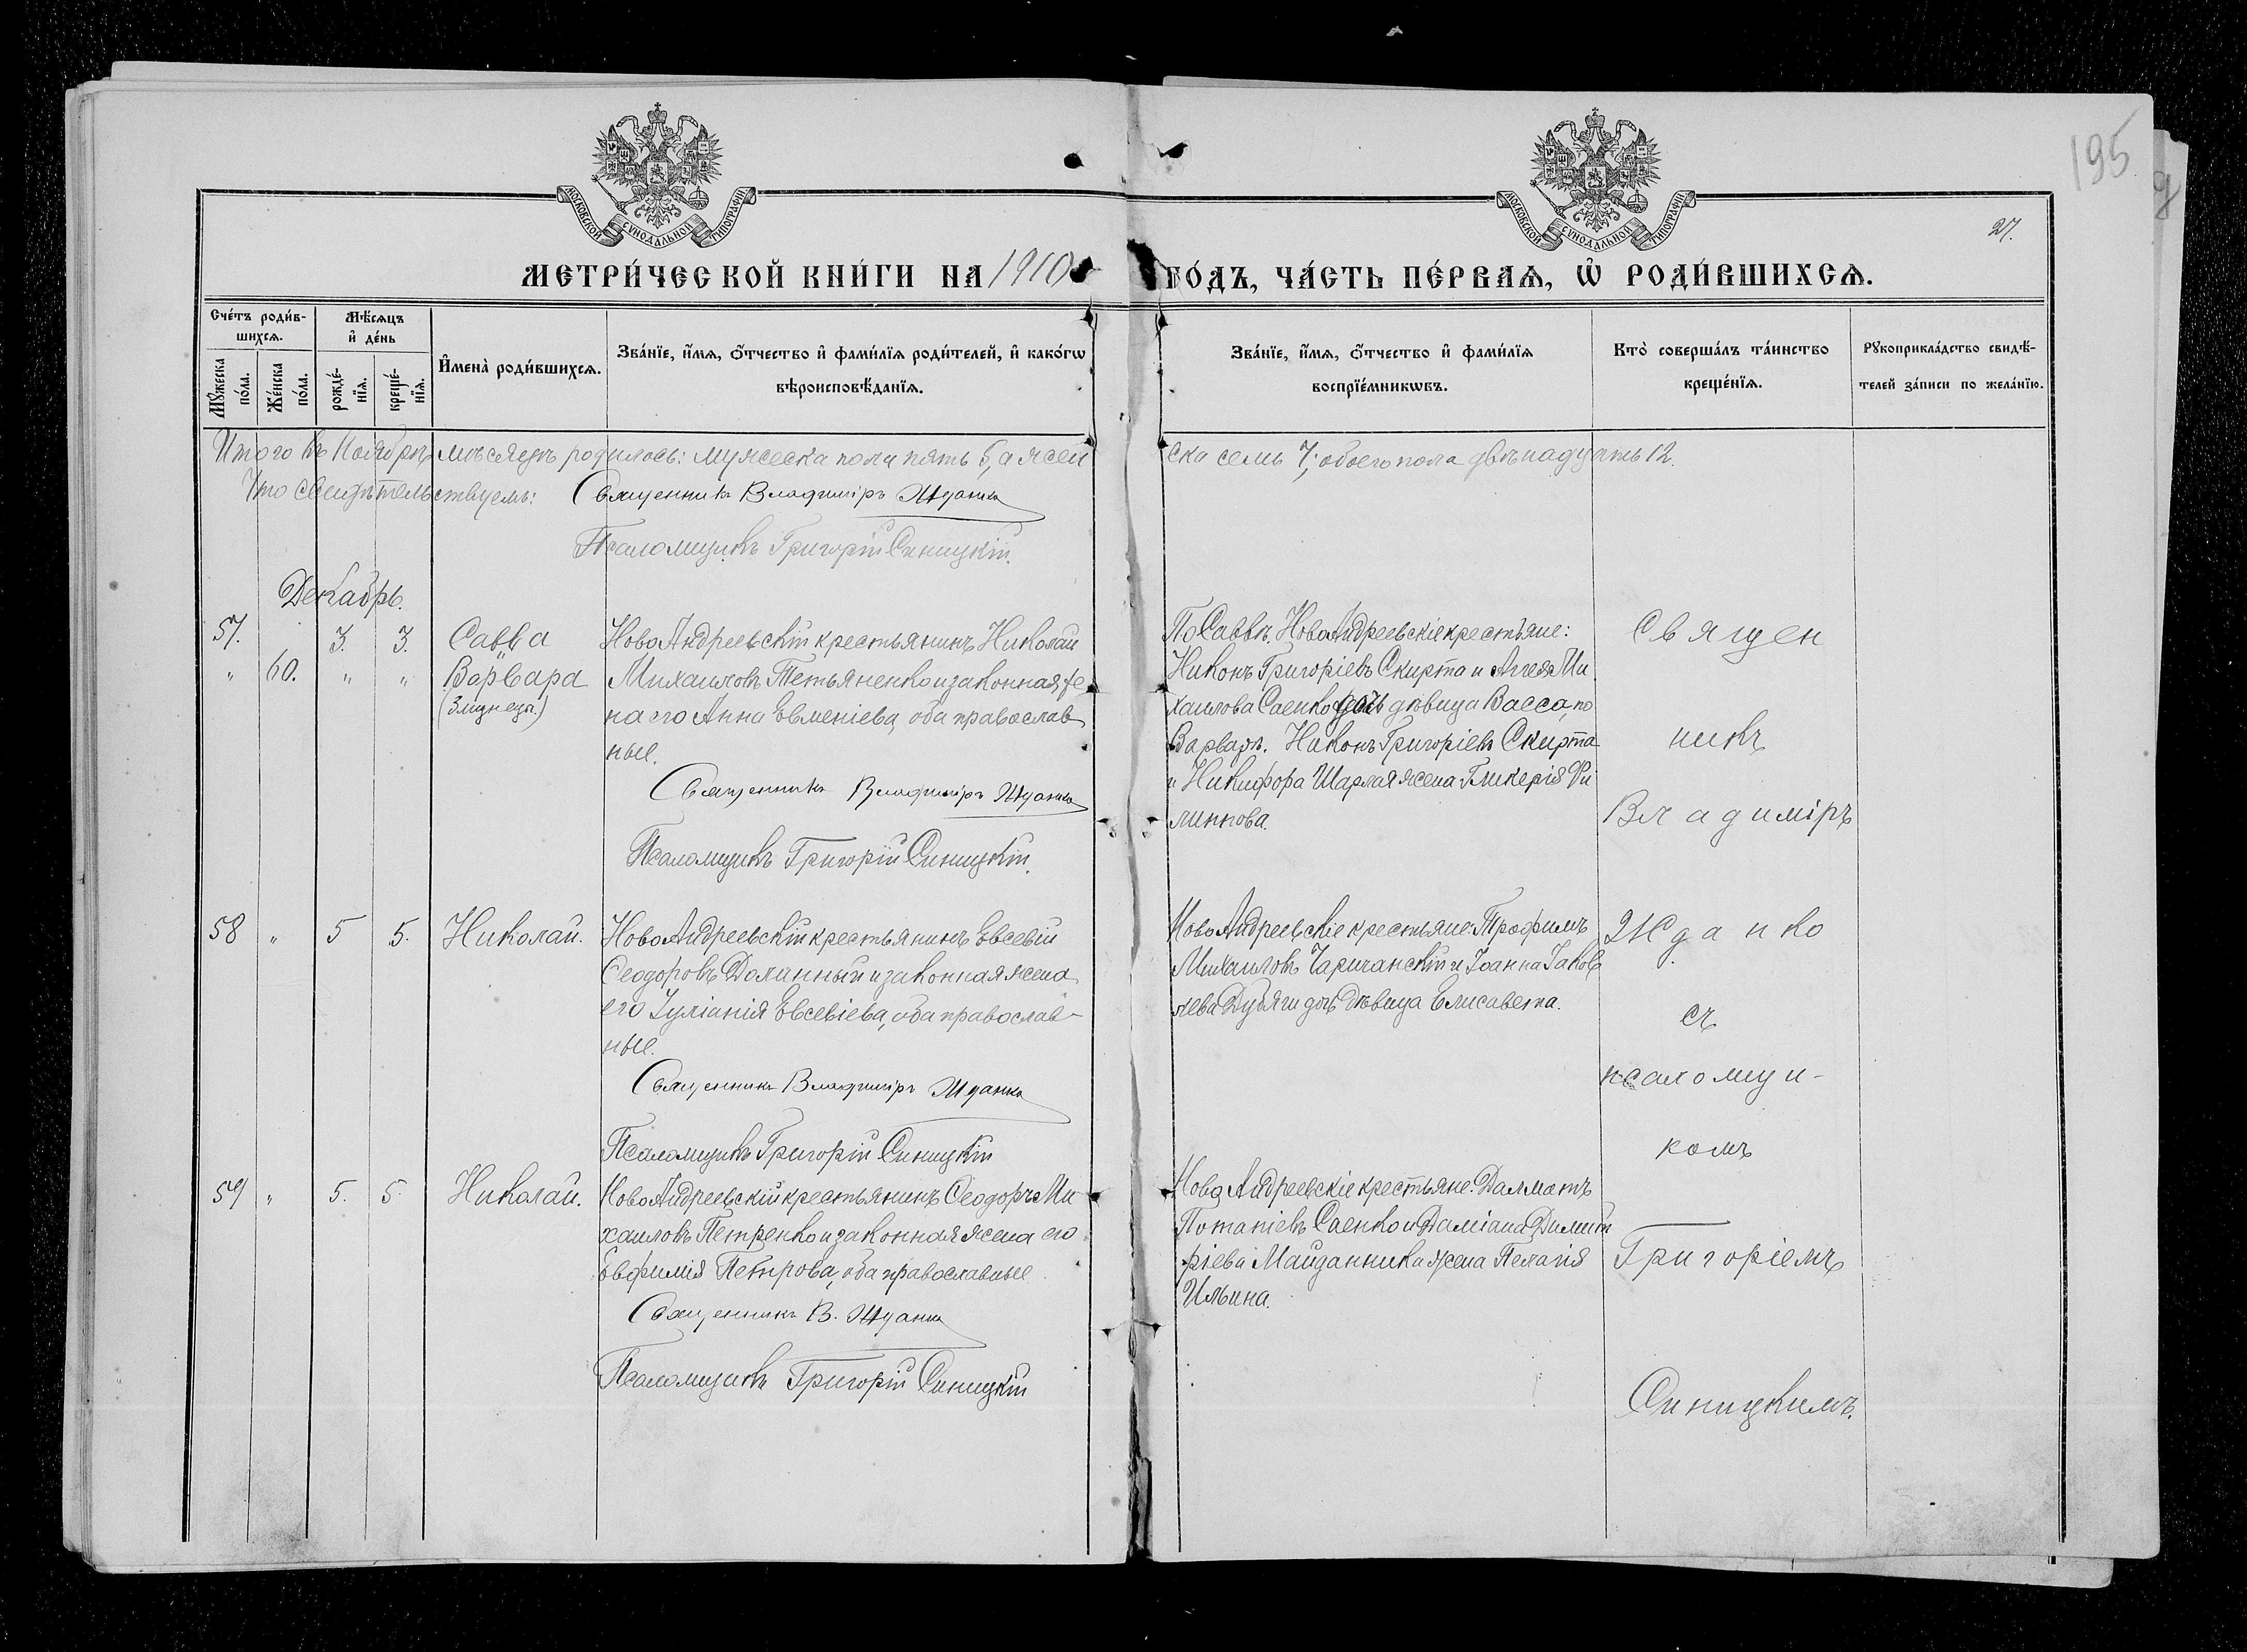 195
27.
МОСКОВСКОЙ СѴНОДАЛЬНОЙ ТИПОГРАФІИ
МОСКОВСКОЙ СѴНОДАЛЬНОЙ ТИПОГРАФІИ
МЕТРИ́ЧЕСКОЙ КНИ́ГИ НА 1910 ГО́ДЪ, ЧА́СТЬ ПЕ́РВАѦ, Ѡ҆ РОДИ́ВШИХСѦ.
Сче́тъ роди́в-
шихсѧ.
Мꙋ́жеска
по́ла.
Же́нска
по́ла.
Мѣ́сѧцъ
и҆ де́нь
рожде́-
нїѧ.
креще́-
нїѧ.
И҆мена̀ роди́вшихсѧ.
Зва́нїе, и҆́мѧ, ѻ҆́тчество и҆ фами́лїѧ роди́телей, и҆ како́гѡ
вѣроисповѣ́данїѧ.
Зва́нїе, и҆́мѧ, ѻ҆́тчество и҆ фами́лїѧ
воспрїе́мникѡвъ.
Кто̀ соверша́лъ та́инство
креще́нїѧ.
Рꙋкоприкла́дство свидѣ́-
телей за́писи по жела́нїю.
Итого въ Ноябрѣ мѣсяцѣ родилось: мужеска пола пять 5, а жен
ска семь 7; обоего пола двѣнадцать 12.
Что свидѣтельствуемъ: Священникъ Владиміръ Жданко
Псаломщикъ Григорій Синицкій.
Декабрь.
57. 3. 3. Савва
" 60. " " Варвара
(близнецы.)
НовоАндреевскій крестьянинъ Николай
Михаиловъ Тетьяненко и законная же
на его Анна Евменіева, оба православ
ные.
Священникъ Владиміръ Жданко
Псаломщикъ Григорій Синицкій.
По Саввѣ. НовоАндреевскіе крестьяне:
Никонъ Григоріевъ Скирта и Ми
хаилова Саенко дочь дѣвица Васса, по
Варварѣ. Никонъ Григоріевъ Скирта
и Никифора Шарлая жена Гликерія Фи
липпова.
58 " 5 5. Николай.
НовоАндреевскій крестьянинъ Евсевій
Ѳеодоровъ Долинный и законная жена
его Іуліанія Евсевіева, оба православ-
ные.
Священникъ Владиміръ Жданко
Псаломщикъ Григорій Синицкій
НовоАндреевскіе крестьяне: Трофимъ
Михаиловъ Чаричанскій и Іоанна Іаков
лева Дубяги дочь дѣвица Елисавета.
59 " 5. 5. Николай.
НовоАндреевскій крестьянинъ Ѳеодоръ Ми
хаиловъ Петренко и законная жена его
Евфимія Петрова, оба православные
Священникъ В. Жданко
Псаломщикъ Григорій Синицкій
НовоАндреевскіе крестьяне: Далматъ
Потапіевъ Саенко и Даміана Димит
ріева Майданника жена Пелагія
Ильина.
Священ
никъ
Владиміръ
Жданко
съ
псаломщи-
комъ
Григоріемъ
Синицкимъ.